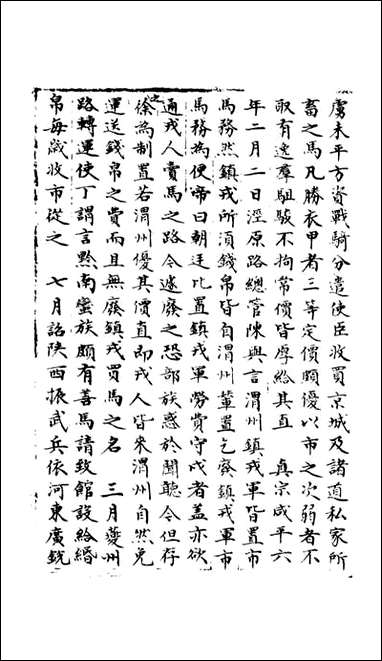 虜未平方資戰騎分遣使臣收買京城及諸道私家所
畜之馬凡勝衣甲者三等定價頗優以市之次弱者不
取有逸羣駔駿不拘常價皆厚給其直 真宗咸平六
年二月二日涇原路總管陳興言渭州鎮戎軍皆置市
馬務然鎮戎所須錢帛皆自渭州輦置乞廢鎮戎軍市
馬務為便帝曰朝廷比置鎮戎軍勞費守戍者蓋亦欲
通戎人賣馬之路令遽廢之恐部族惑於聞聽令但存
徐為制置若渭州優其價直即戎人皆來渭州自然免
運送錢帛之費而且無廢鎮戎買馬之名 三月夔州
路轉運使丁謂言黔南蠻族頗有善馬請致館設給緡
帛每歲收市從之 七月詔陝西振武兵依河東廣銳